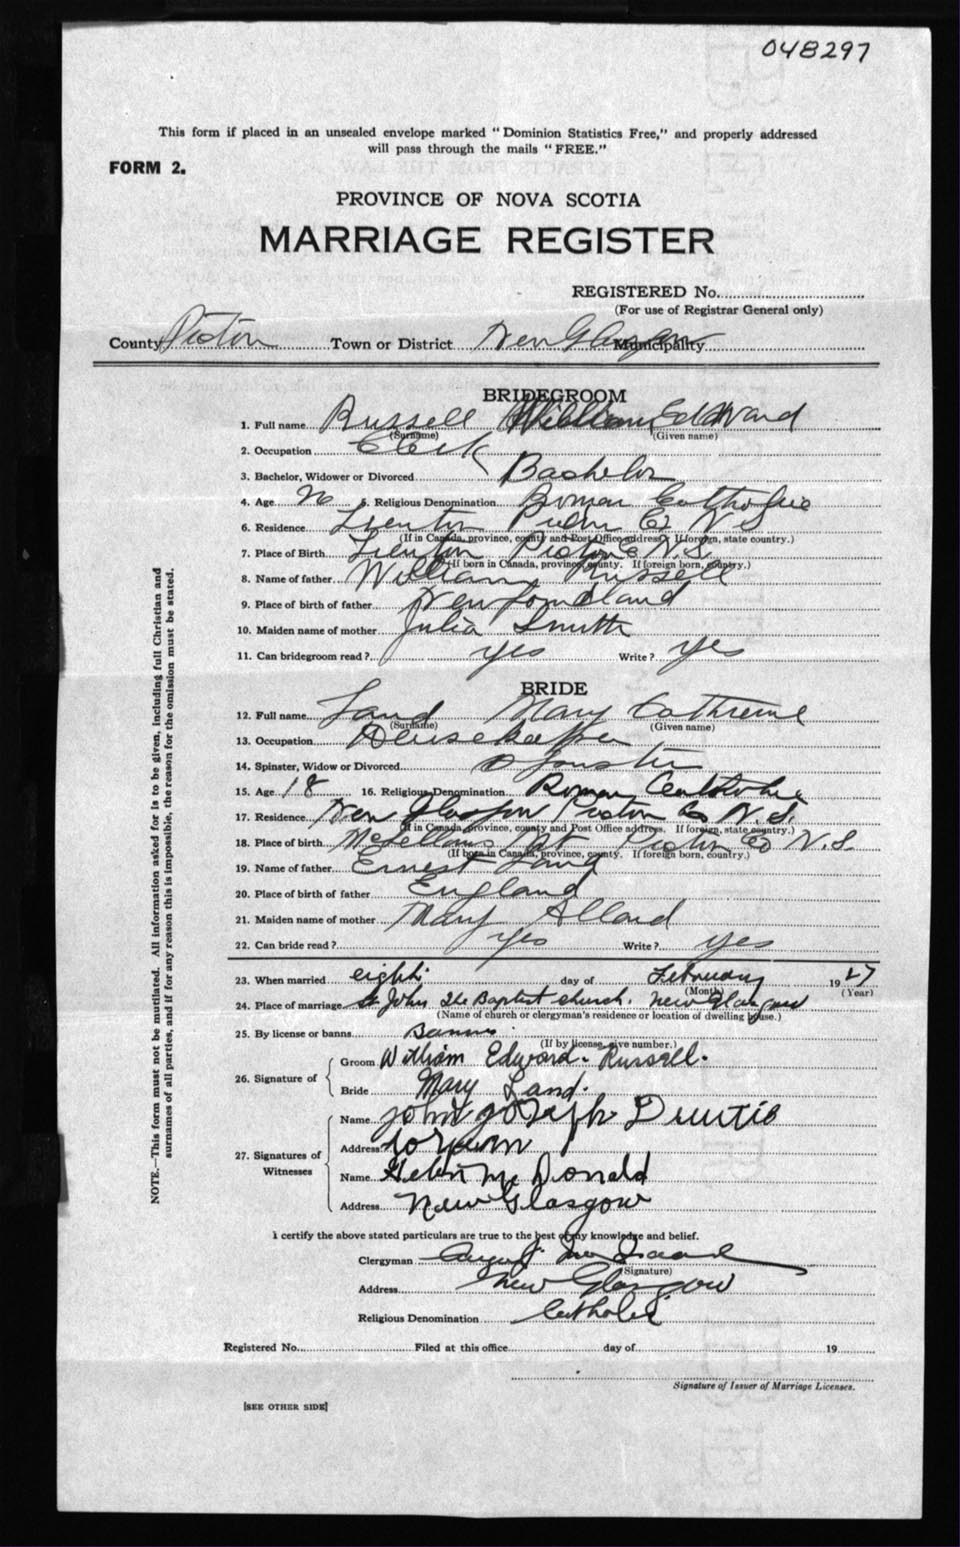 048297
This form if placed in an unsealed envelope marked "Dominion Statistics Free," and properly addressed
will pass through the mails "FREE."
FORM 2.
PROVINCE OF NOVA SCOTIA
MARRIAGE REGISTER
REGISTERED No.
(For use of Registrar General only)
County Pictou Town or District New Glasgow Municipality
BRIDEGROOM
1. Full name Russell William Edward
(Surname) (Given name)
2. Occupation Clerk
3. Bachelor, Widower or Divorced Bachelor
4. Age 26 5. Religious Denomination Roman Catholic
6. Residence Trenton Pictou Co N S
(If in Canada, province, county and Post Office address. If foreign, state country.)
7. Place of Birth Trenton Pictou Co N.S.
(If born in Canada, province, county. If foreign born, country.)
8. Name of father William Russell
9. Place of birth of father Newfoundland
10. Maiden name of mother Julia Smith
11. Can bridegroom read? yes Write? yes
BRIDE
12. Full name Land Mary Cathrine
(Surname) (Given name)
13. Occupation Housekeeper
14. Spinster, Widow or Divorced Spinster
15. Age 18 16. Religious Denomination Roman Catholic
17. Residence New Glasgow Pictou Co N.S.
(If in Canada, province, county and Post Office address. If foreign, state country.)
18. Place of birth McLellans Mt Pictou Co N.S.
(If born in Canada, province, county. If foreign born, country.)
19. Name of father Ernest Land
20. Place of birth of father England
21. Maiden name of mother Mary Allard
22. Can bride read? yes Write? yes
23. When married eighth day of February 1927
(Month) (Year)
24. Place of marriage St Johns The Baptist church. New Glasgow
(Name of church or clergyman's residence or location of dwelling house.)
25. By license or banns Banns
(If by license, give number.)
26. Signature of Groom William Edward Russell.
Bride Mary Land.
27. Signatures of Witnesses Name John Joseph
Address
Name Helen Mc Donald
Address New Glasgow
I certify the above stated particulars are true to the best of my knowledge and belief.
Clergyman
(Signature)
Address New Glasgow
Religious Denomination Catholic
Registered No. Filed at this office day of 19
Signature of Issuer of Marriage Licenses.
[SEE OTHER SIDE]
NOTE.—This form must not be mutilated. All information asked for is to be given, including full Christian and
surnames of all parties, and if for any reason this is impossible, the reason for the omission must be stated.